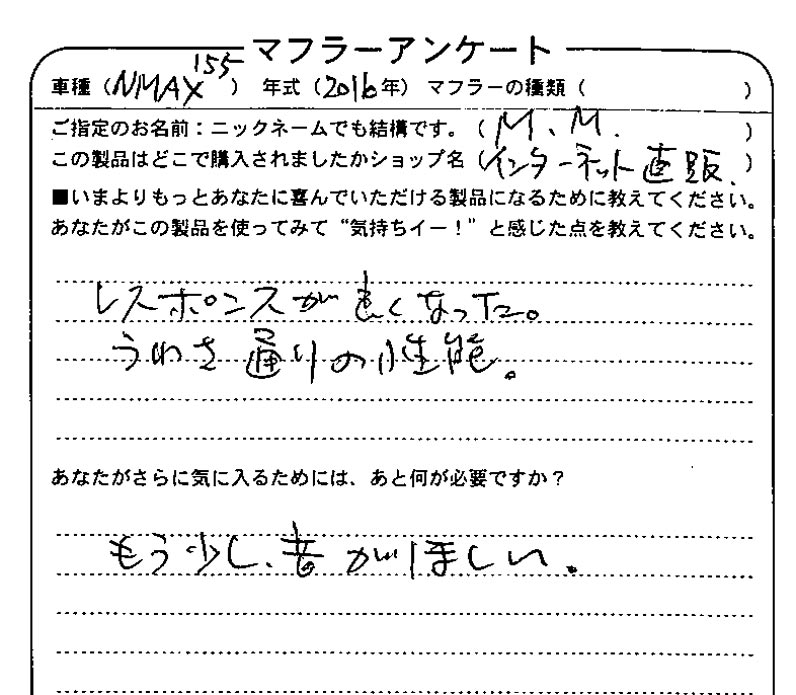 マフラーアンケート
車種（NMAX155）　年式（2016年）　マフラーの種類（　　　　）
ご指定のお名前：ニックネームでも結構です。（M、M.　　　　）
この製品はどこで購入されましたかショップ名（インターネット直販.）
■いまよりもっとあなたに喜んでいただける製品になるために教えてください。
あなたがこの製品を使ってみて“気持ちイー！”と感じた点を教えてください。
レスポンスが良くなった。
うわさ通りの性能。
あなたがさらに気に入るためには、あと何が必要ですか？
もう少し、音がほしい。